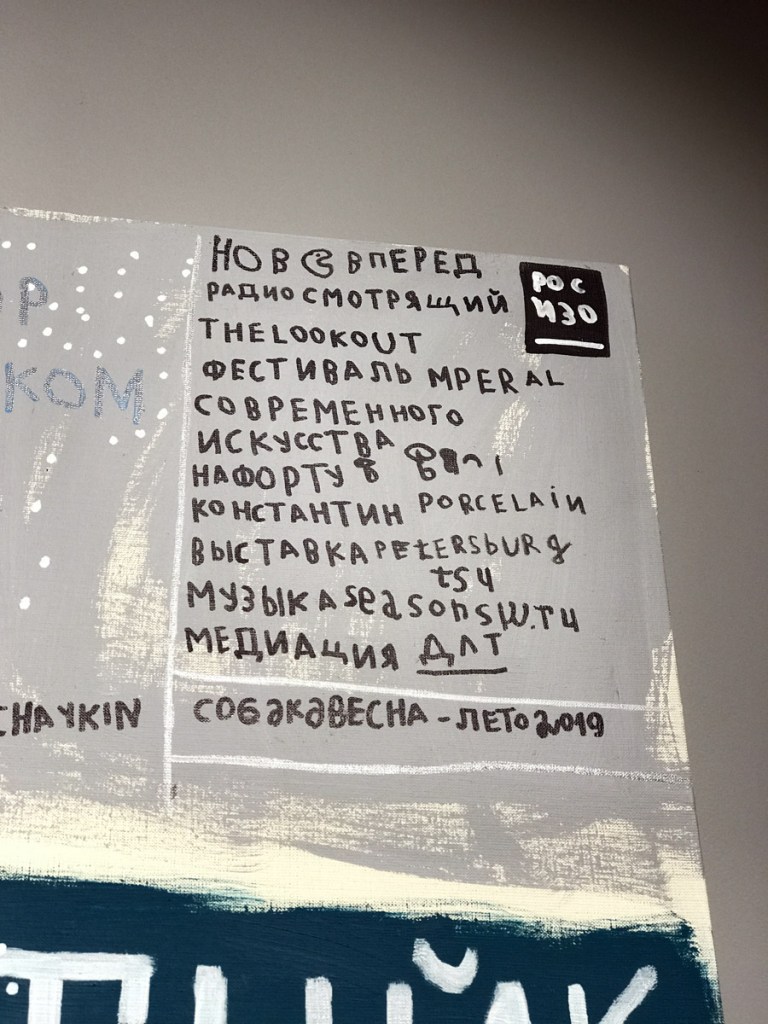 НОВ С ВПЕРЕД
РОС
ИЗО
РАДИО СМОТРЯЩИЙ
THELOOKOUT
ФЕСТИВАЛЬ MPERAL
СОВРЕМЕННОГО
ИСКУССТВА
НАФОРТУ В
КОНСТАНТИН PORCELAIN
ВЫСТАВКА PETERSBURG
МУЗЫКА seasons
МЕДИАЦИЯ ДЛТ
CHAYKIN
СОБАКАВЕСНА - ЛЕТО 2019
КОМ